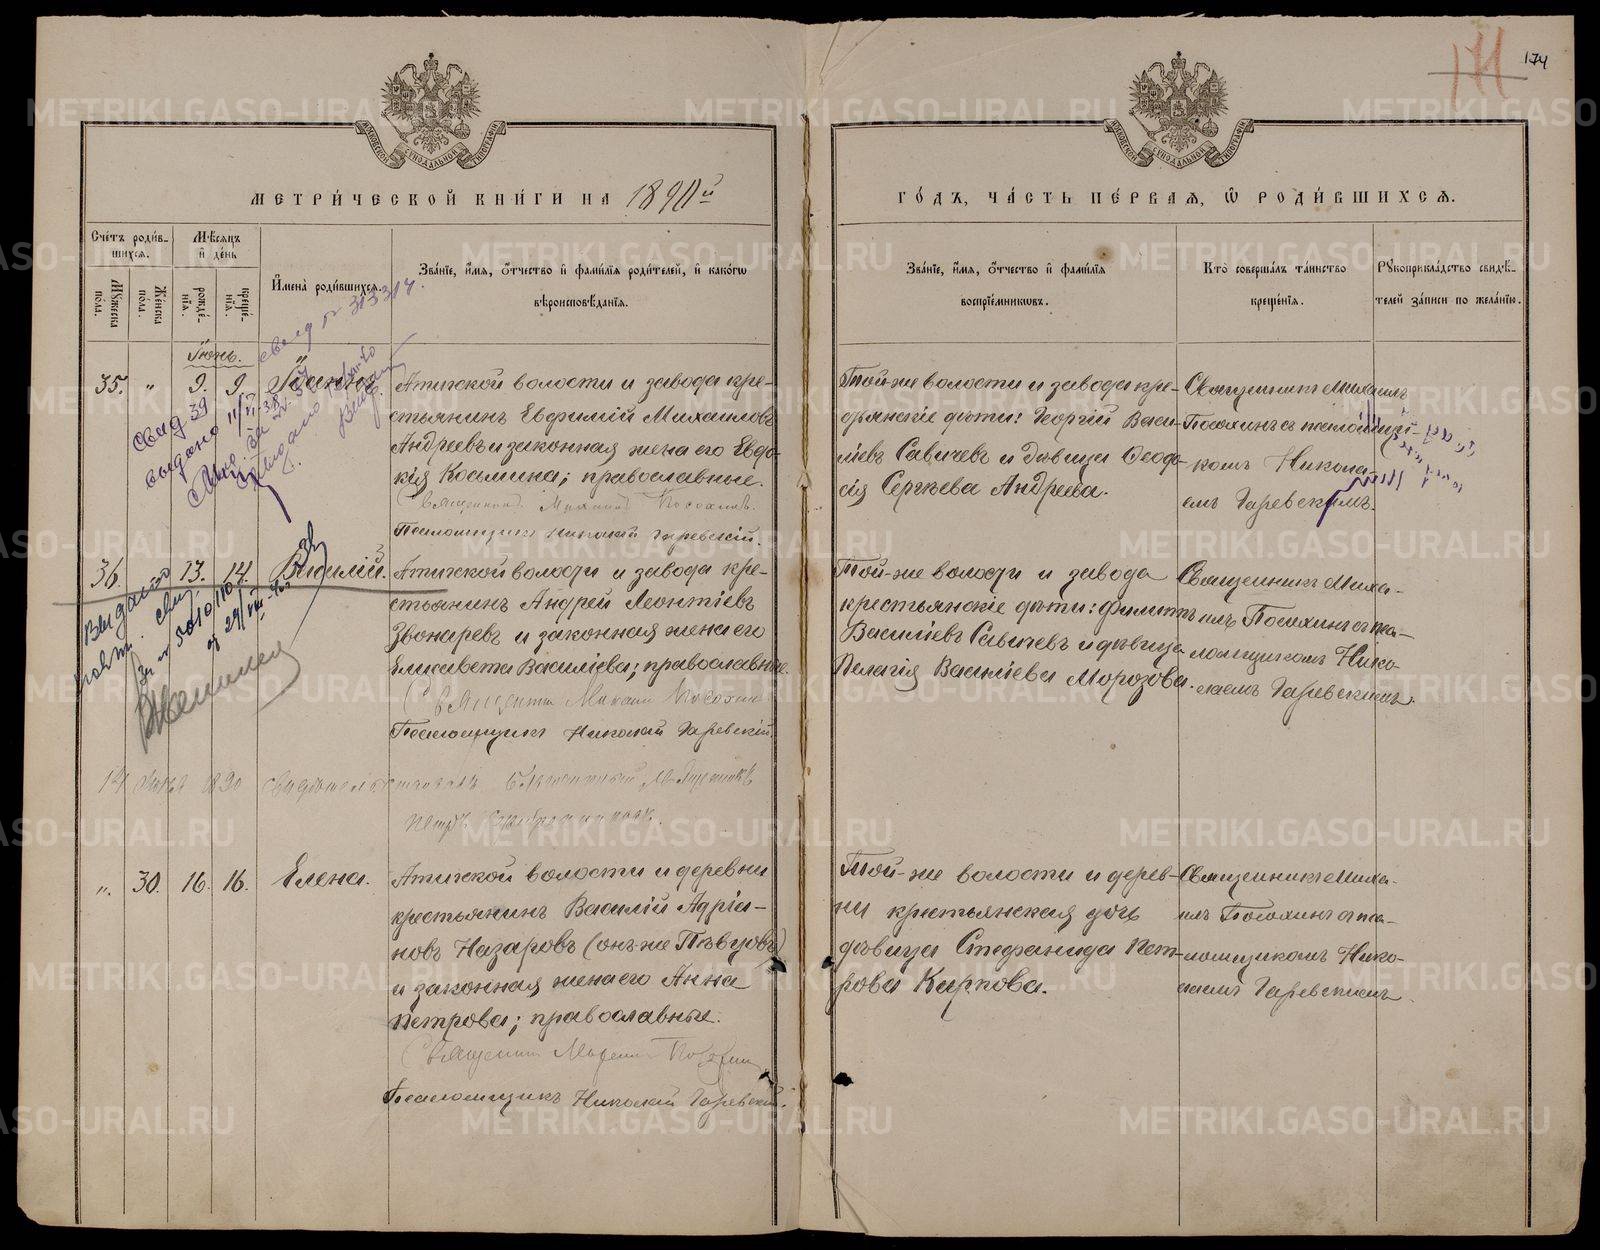 171
174
МОСКОВСКОЙ СѴНОДАЛЬНОЙ ТИПОГРАФІИ
МОСКОВСКОЙ СѴНОДАЛЬНОЙ ТИПОГРАФІИ
МЕТРИ́ЧЕСКОЙ КНИ́ГИ НА 1890й
ГО́ДЪ, ЧА́СТЬ ПЕ́РВАЯ, Ѡ҆ РОДИ́ВШИХСЯ.
Сче́тъ роди́в-
шихся.
Му́жеска по́ла.
Же́нска по́ла.
Мѣ́сяцъ и҆ де́нь
рожде́-
нїя.
креще́-
нїя.
И҆мена̀ роди́вшихся.
Зва́нїе, и҆́мя, ѻ҆́тчество и҆ фами́лїя роди́телей, и҆ како́гѡ
вѣроисповѣ́данїя.
Зва́нїе, и҆́мя, ѻ҆́тчество и҆ фами́лїя
воспрїе́мниковъ.
Кто̀ соверша́лъ та́инство
креще́нїя.
Рꙋкоприкла́дство свидѣ́-
телей за́писи по жела́нїю.
Іюнь.
35. " 9. 9. Іоаннъ.
Атигской волости и завода кре-
стьянинъ Евфимій Михаиловъ
Андреевъ и законная жена его Евдо-
кія Косьмина; православные.
Священникъ Михаилъ Посохинъ.
Псаломщикъ Николай Гаревскій.
Той-же волости и завода кре-
стьянскіе дѣти: Георгій Васи-
ліевъ Савичевъ и дѣвица Ѳеодо-
сія Сергѣева Андреева.
Священникъ Михаилъ
Посохинъ съ псаломщи-
комъ Никола-
емъ Гаревскимъ.
36. 13. 14. Василій.
Атигской волости и завода кре-
стьянинъ Андрей Леонтіевъ
Звонаревъ и законная жена его
Елисавета Василіева; православные.
Священникъ Михаилъ Посохинъ
Псаломщикъ Николай Гаревскій.
Той-же волости и завода
крестьянскіе дѣти: Филиппъ
Василіевъ Савичевъ и дѣвица
Пелагія Василіева Морозова.
Священникъ Миха-
илъ Посохинъ съ пса-
ломщикомъ Нико-
лаемъ Гаревскимъ.
14 1890 свидѣтельствовалъ
Петръ
" 30. 16. 16. Елена.
Атигской волости и деревни
крестьянинъ Василій Адріа-
новъ Назаровъ (онъ же Пѣвцовъ)
и законная жена его Анна
Петрова; православные.
Священникъ Михаилъ Посохинъ
Псаломщикъ Николай Гаревскій.
Той-же волости и дерев-
ни крестьянская дочь
дѣвица Стефанида Пет-
рова Карпова.
Священникъ Миха-
илъ Посохинъ съ пса-
ломщикомъ Нико-
лаемъ Гаревскимъ.
METRIKI.GASO-URAL.RU